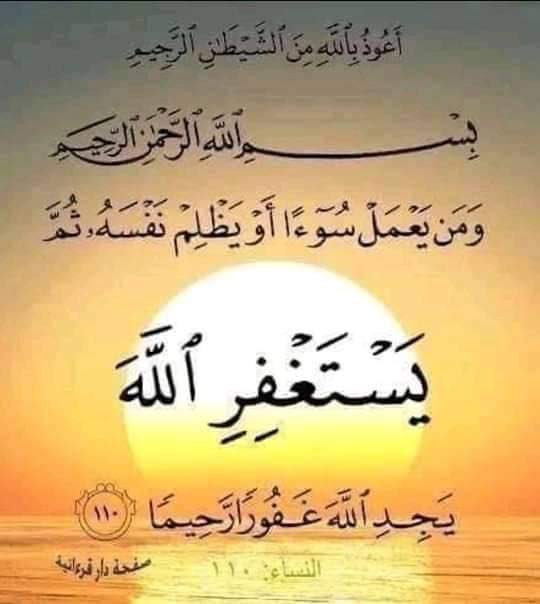 أَعُوذُ بِٱللَّهِ مِنَ ٱلشَّيْطَٰنِ ٱلرَّجِيمِ
بِسْمِ ٱللَّهِ ٱلرَّحْمَٰنِ ٱلرَّحِيمِ
وَمَن يَعْمَلْ سُوٓءًا أَوْ يَظْلِمْ نَفْسَهُۥ ثُمَّ
يَسْتَغْفِرِ ٱللَّهَ
يَجِدِ ٱللَّهَ غَفُورًا رَّحِيمًا ١١٠
النساء: ١١٠ صفحة دار قرءانية